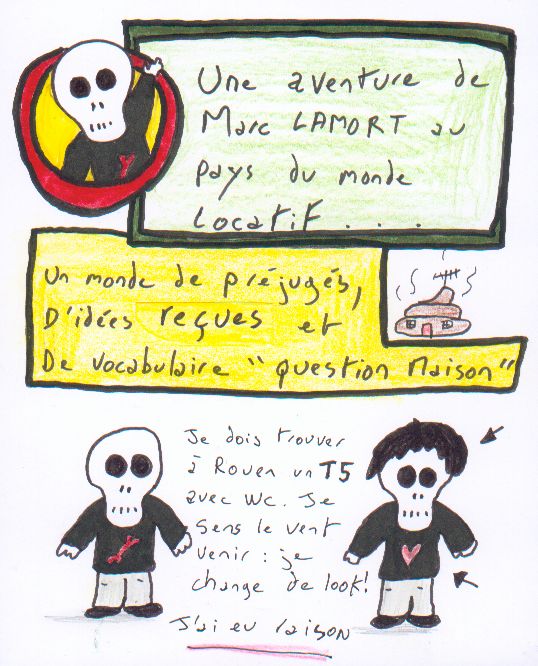 Une aventure de
Marc LAMORT au
pays du monde
locatif . . . .
Un monde de préjugés,
D'idées reçues et
De vocabulaire "question Maison"
Je dois trouver
à Rouen un T5
avec WC. Je
sens le vent
venir : je
change de look!
J'ai eu raison